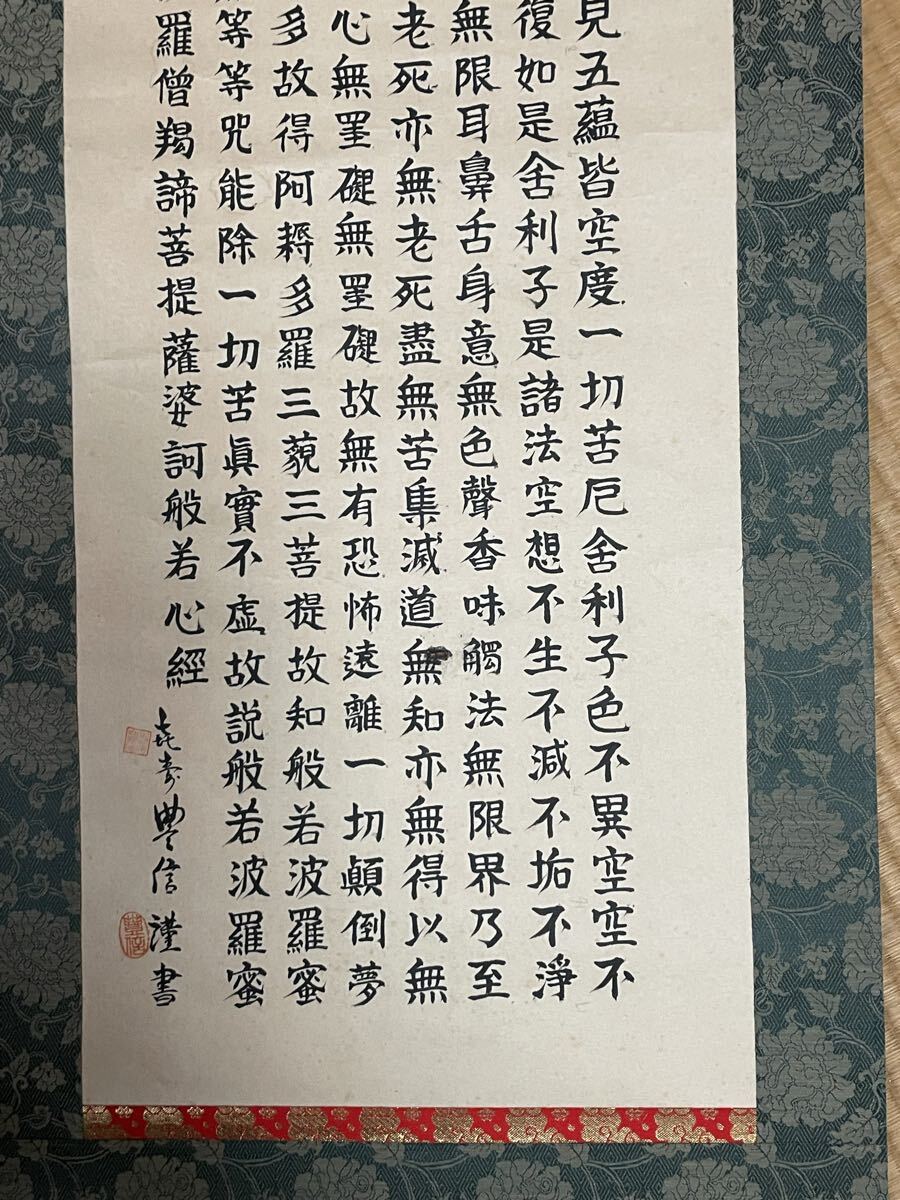 見五蘊皆空度一切苦厄舍利子色不異空空不
復如是舍利子是諸法空想不生不減不垢不淨
無限耳鼻舌身意無色聲香味觸法無限界乃至
老死亦無老死盡無苦集滅道無知亦無得以無
心無罣礙無罣礙故無有恐怖遠離一切顛倒夢
多故得阿耨多羅三藐三菩提故知般若波羅蜜
等等咒能除一切苦眞實不虛故説般若波羅蜜
羅僧羯諦菩提薩婆訶般若心經
㐂寿豊信謹書